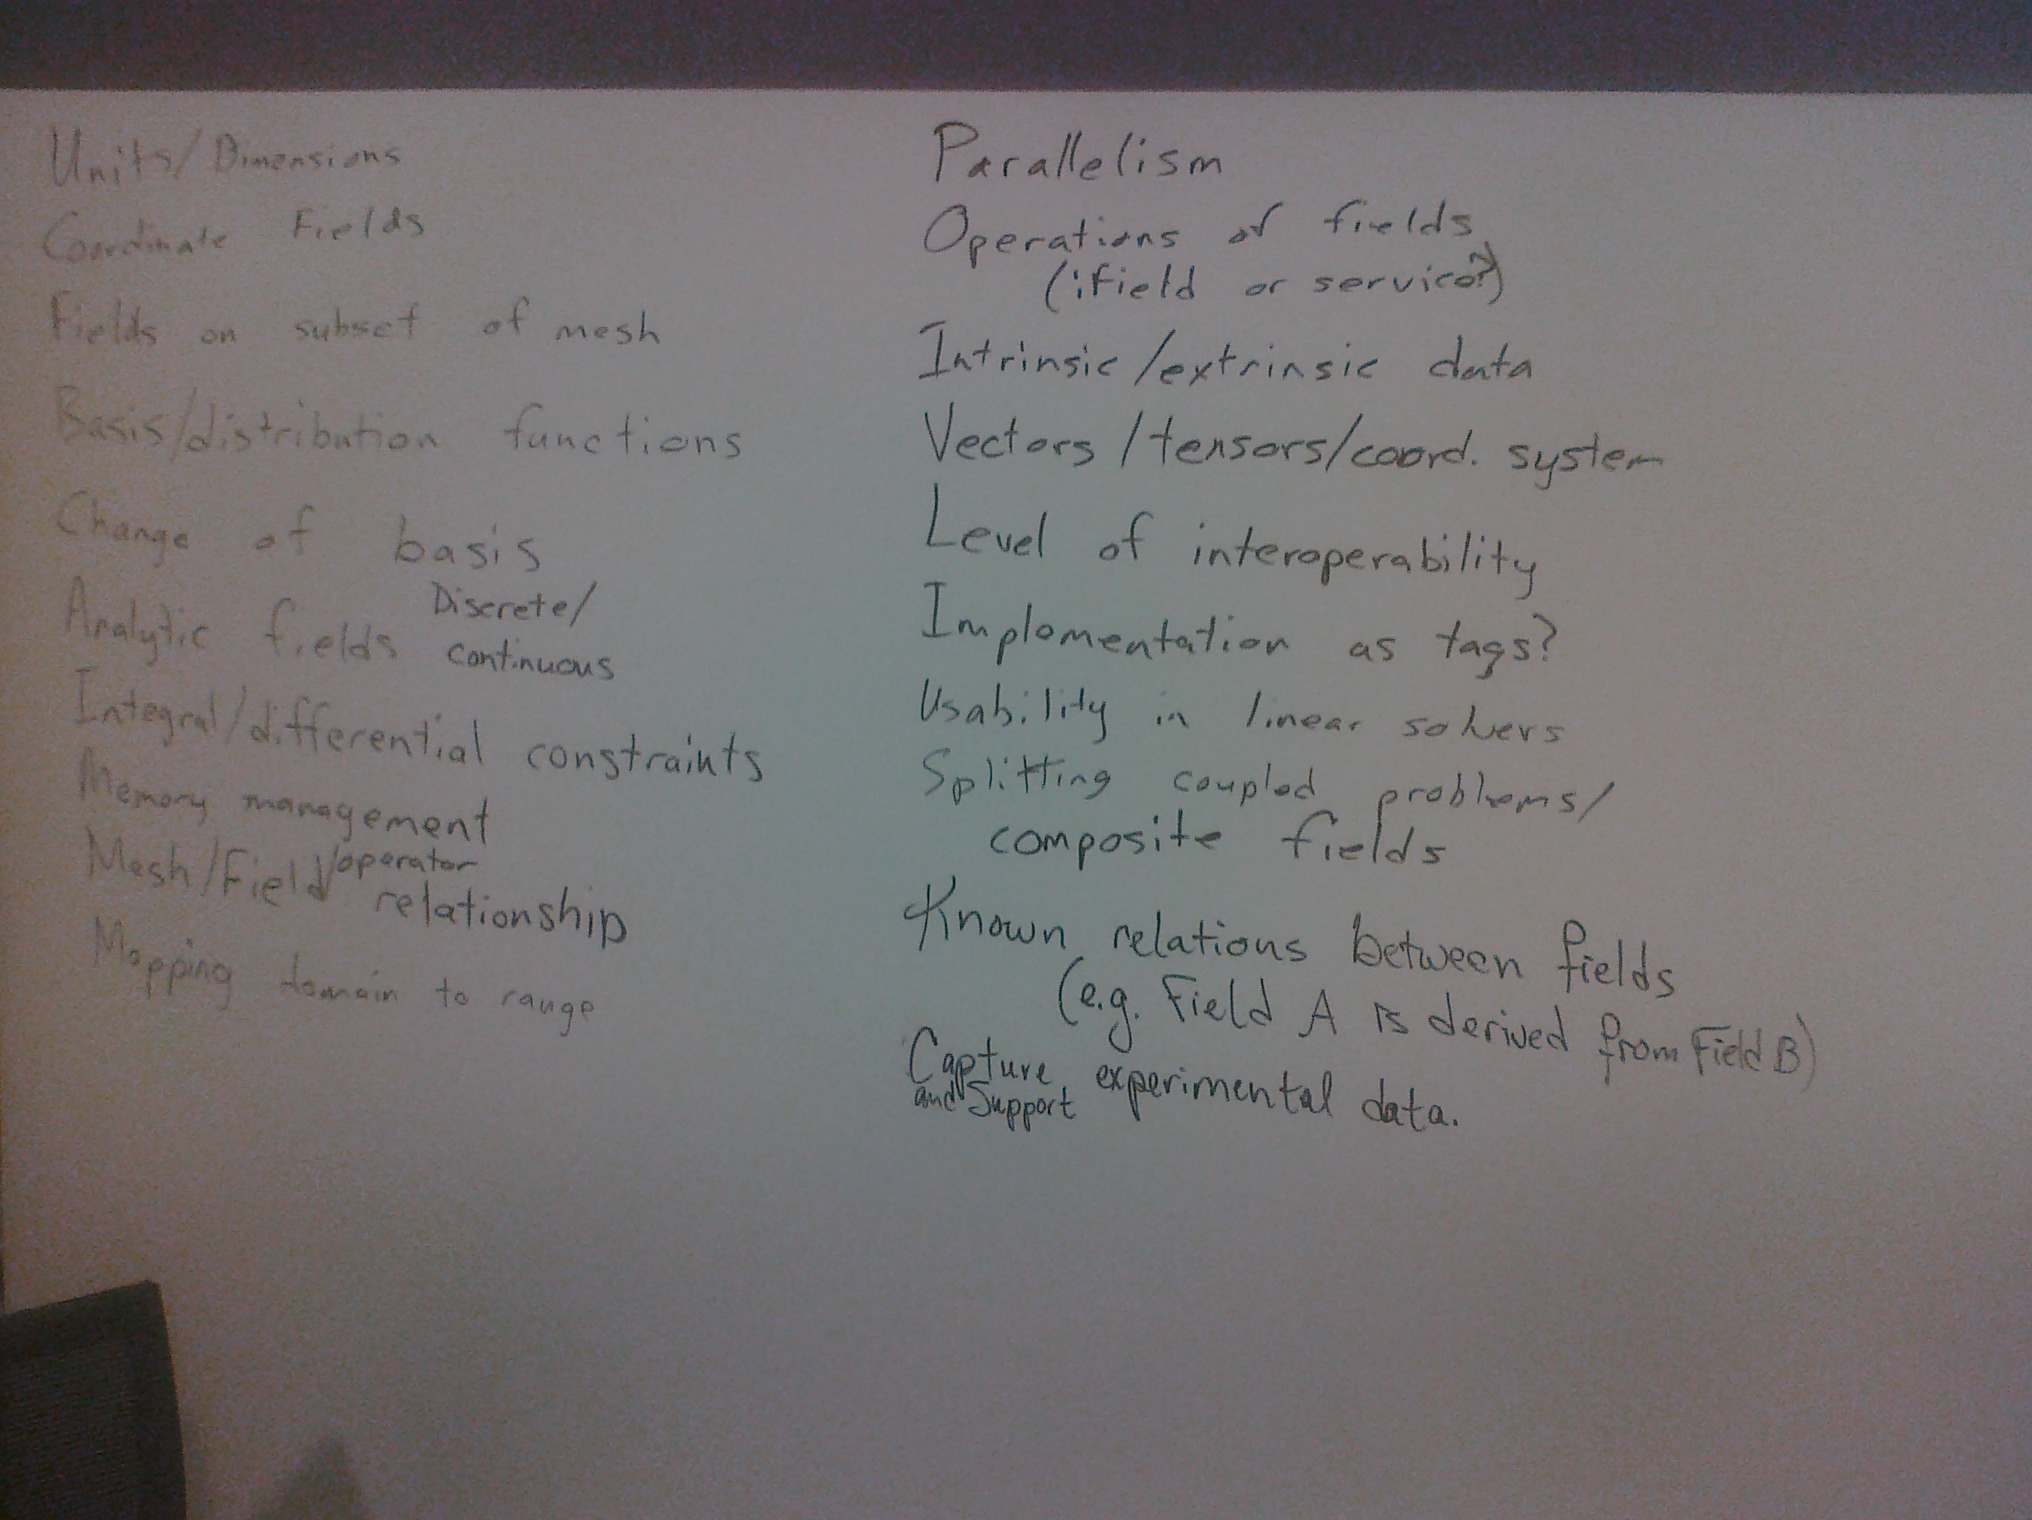 Units/Dimensions
Coordinate Fields
Fields on subset of mesh
Basis/distribution functions
Change of basis
Analytic fields Discrete/
continuous
Integral/differential constraints
Memory management
Mesh/Field/operator
relationship
Mapping domain to range
Parallelism
Operations of fields
(iField or service?)
Intrinsic/extrinsic data
Vectors/tensors/coord. system
Level of interoperability
Implementation as tags?
Usability in linear solvers
Splitting coupled problems/
composite fields
Known relations between fields
(e.g. Field A is derived from Field B)
Capture experimental data.
and Support